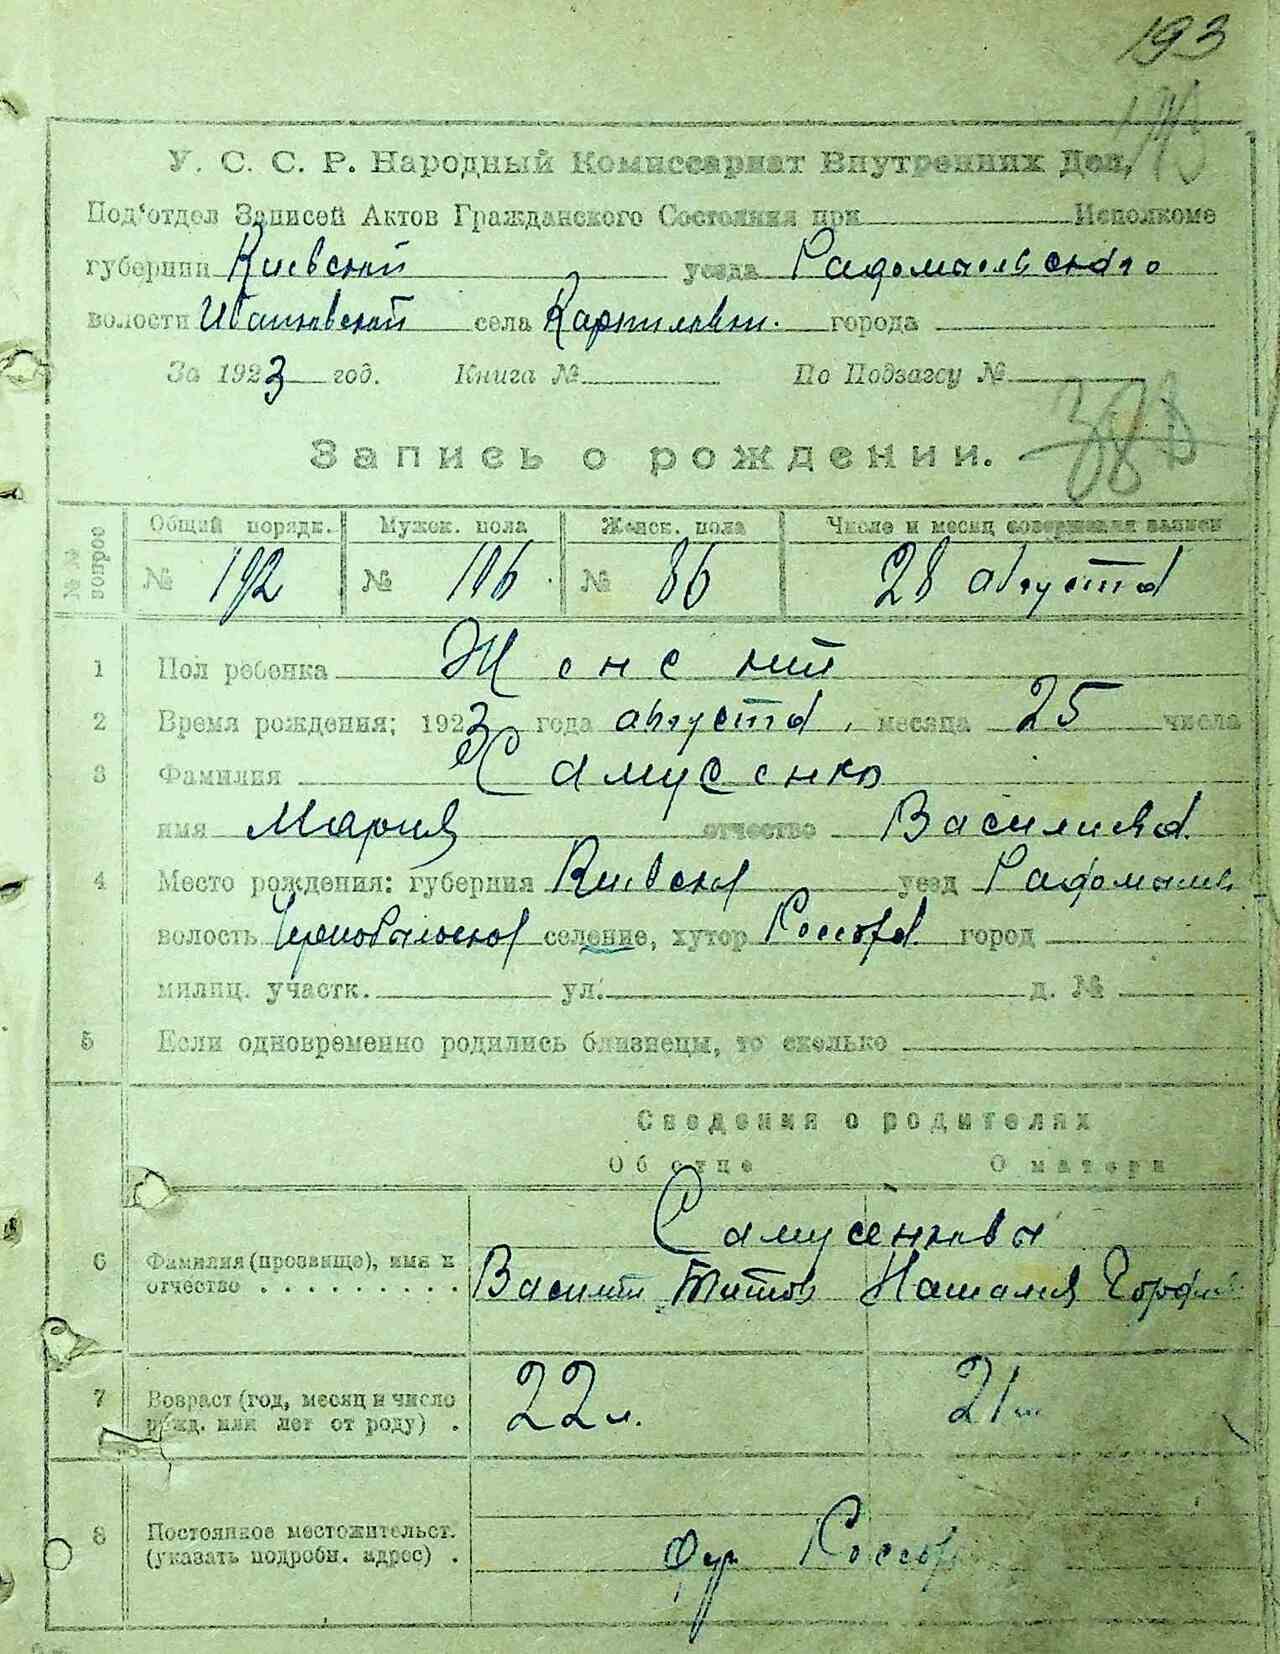 193
У. С. С. Р. Народный Комиссариат Внутренних Дел,
Под'отдел Записей Актов Гражданского Состояния при Исполкоме
губернии Киевской уезда Радомысльского
волости Иванковской села Карпиловки. города
За 1923 год. Книга № По Подзагсу №
388
Запись о рождении.
№№ вопрос Общий порядк. Мужск. пола Женск. пола Число и месяц совершения записи
№ 192 № 106 № 86 28 августа
1 Пол ребенка Женский
2 Время рождения: 1923 года августа месяца 25 числа
3 Фамилия Самусенко
имя Мария отчество Васильева
4 Место рождения: губерния Киевская уезд Радомысль
волость селение, хутор город
милиц. участк. ул. д. №
5 Если одновременно родились близнецы, то сколько
Сведения о родителях
Об отце О матери
Самусенковы
6 Фамилия (прозвище), имя и
отчество . . . . . . . . . Василий Титов Наталия
7 Возраст (год, месяц и число
рожд. или лет от роду) . 22 л. 21
8 Постоянное местожительст.
(указать подробн. адрес) .